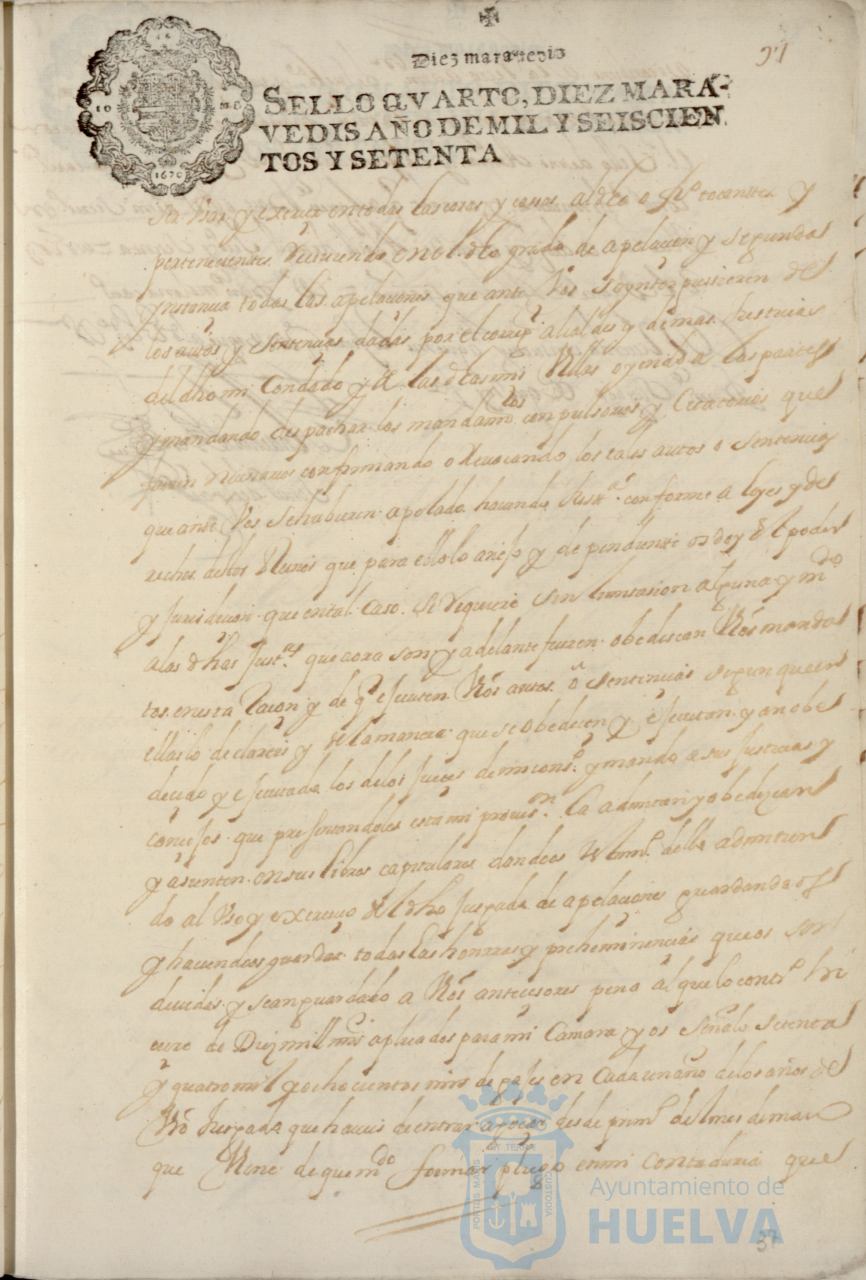 Diez marauedis
91
SELLO QVARTO, DIEZ MARA-
VEDIS AÑO DE MIL Y SEISCIEN
TOS Y SETENTA
1670
en todas las cosas y casos al dho offº tocantes y
pertenecientes en el dho grado de apelacion y segunda
ynstancia todas las apelaciones que ante Vos se ynterpusieren de
los autos y sentencias dadas por el corregʳ alcaldes y demas Justicias
del dho mi Condado y de las dhas mis Villas oyendo a las partes
y mandando despachar los mandamᵗᵒˢ conpulsorios y citatorios que
fueren necesarios confirmando o Revocando los tales autos o sentencias
que ante Vos se hubieren apelado haciendo Justᵃ conforme a leyes y de
rechos destos Reinos que para ello lo anejo y dependiente os doy el poder
y Jurisdicion que en tal caso se requiere sin limitasion alguna y mᵈᵒ
a las dhas Justᵃˢ que aora son y adelante fueren obedescan Vros manda
tos en esta Raçon y de q executen Vros autos o sentencias segun que en
ellas lo declareis y de la manera que se obedecen y executan y an obe
decido y executado los de los Jueces de mi consº y mando a sus Justicias y
concejos que presentandoles esta mi provisᵒⁿ la admitan y obedezcan
y asienten en sus libros capitulares dandoos testimº della admitien
do al Uso y exercicio del dho Juzgado de apelaciones guardandoos
y haciendoos guardar todas las honrras y preheminencias que os son
devidas y sean guardado a Vros antecesores pena al que lo contrº hi
ciere de Diez mill mrs aplicados para mi Camara y os señalo setenta
y quatro mil y ochocientos mrs de en cada un año de los años del
Vro Juzgado que haveis de entrar a gozar desde primº del mes de março
que Viene de que mᵈᵒ formar pliego en mi contaduria que
PORTUS MARIS ET TERRE CUSTODIA
Ayuntamiento de
HUELVA
37